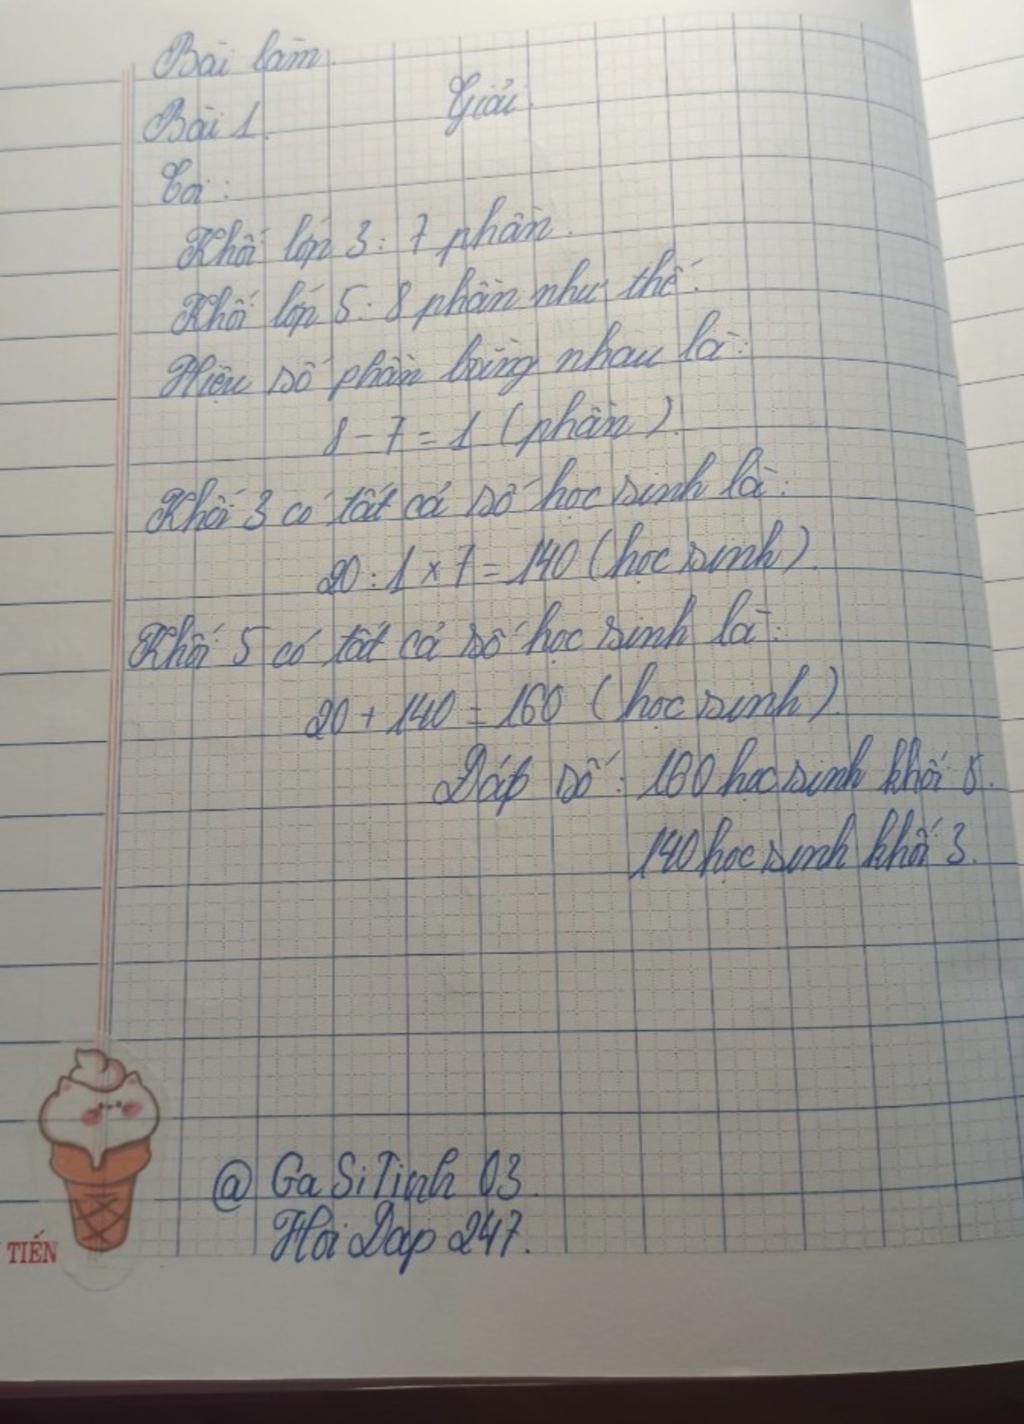 Bài làm.
Bài 1. Giải.
Ta:
Khối lớp 3: 7 phần.
Khối lớp 5: 8 phần như thế.
Hiệu số phần bằng nhau là:
8 - 7 = 1 (phần).
Khối 3 có tất cả số học sinh là:
20 : 1 x 7 = 140 (học sinh).
Khối 5 có tất cả số học sinh là:
20 + 140 = 160 (học sinh).
Đáp số: 160 học sinh khối 5.
140 học sinh khối 3.
@ Ga Si Tinh 03.
Hoi Dap 247.
TIẾN